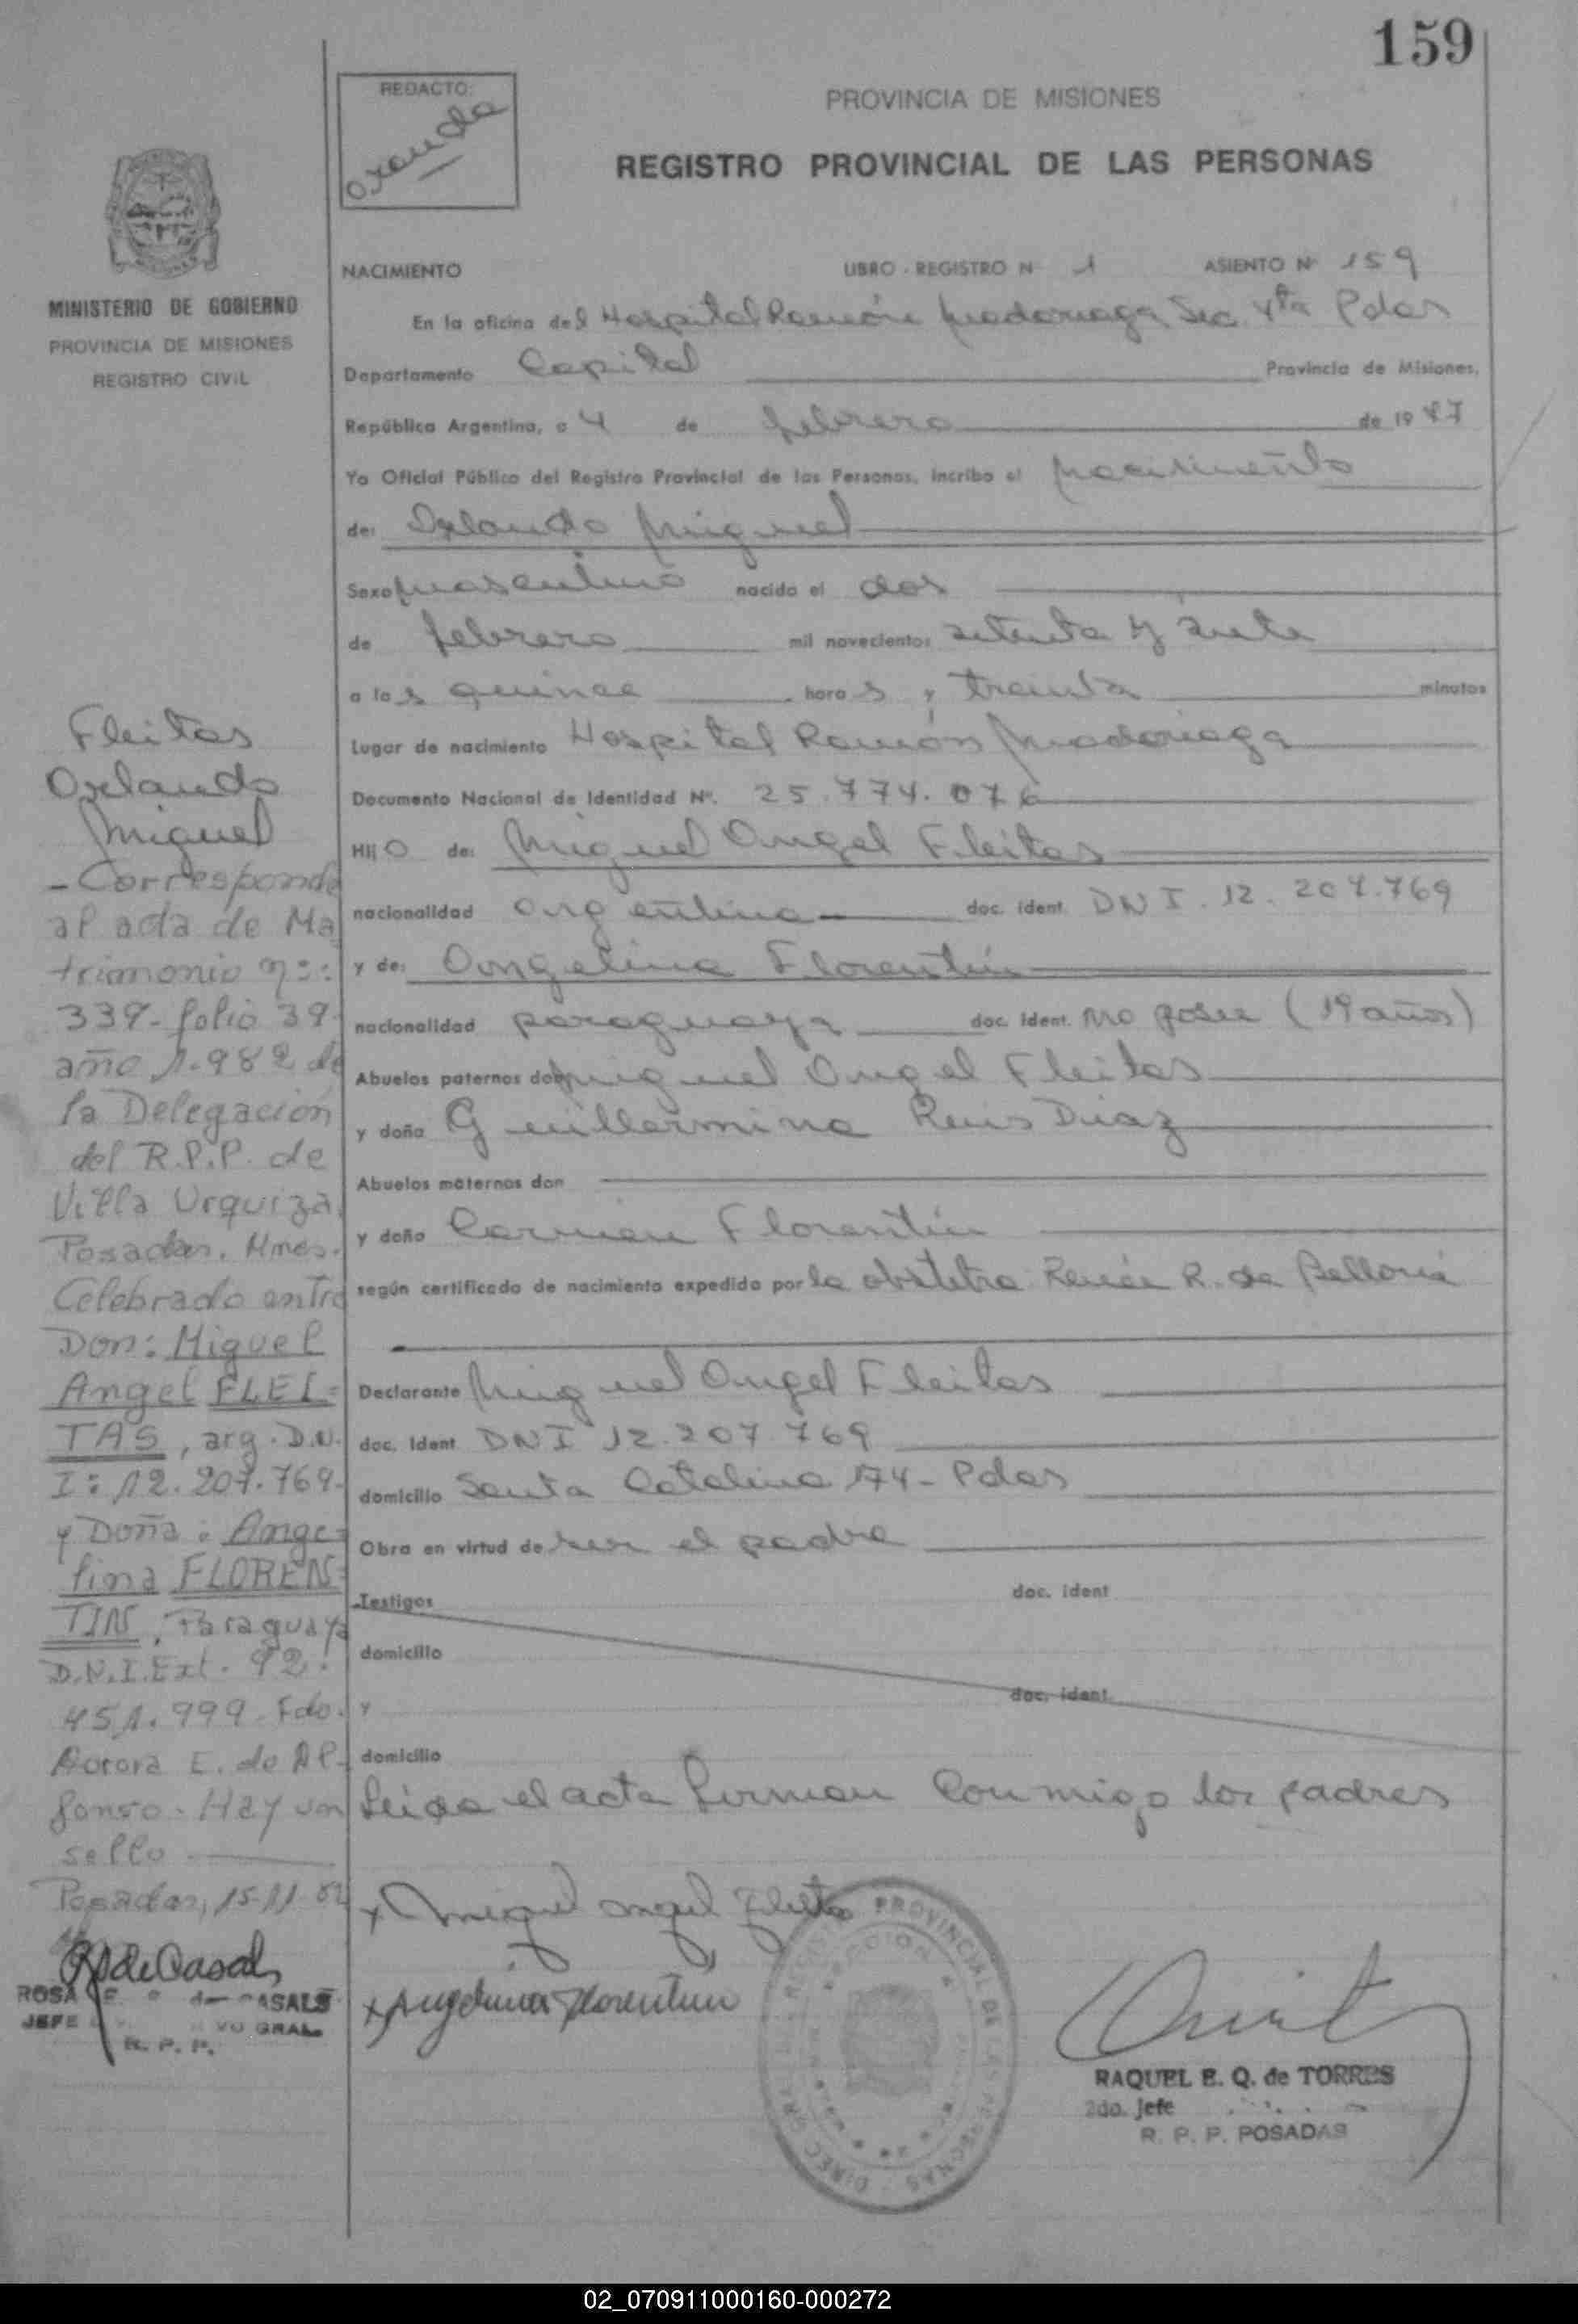 159
REDACTO:
Oxanda
PROVINCIA DE MISIONES
REGISTRO PROVINCIAL DE LAS PERSONAS
MINISTERIO DE GOBIERNO
PROVINCIA DE MISIONES
REGISTRO CIVIL
NACIMIENTO LIBRO - REGISTRO N 1 ASIENTO Nº 159
En la oficina del Hospital Ramón Madariaga Sec. 4ta Pdas
Departamento Capital Provincia de Misiones,
República Argentina, a 4 de febrero de 1977
Yo Oficial Público del Registro Provincial de las Personas, incribo el nacimiento
de: Orlando Miguel
Sexo masculino nacido el dos
de febrero mil novecientos setenta y siete
a las quince horas y treinta minutos
Lugar de nacimiento Hospital Ramón Madariaga
Documento Nacional de Identidad Nº. 25.774.076
Hijo de: Miguel Angel Fleitas
nacionalidad argentina doc. ident. DNI. 12.207.769
y de: Angelina Florentín
nacionalidad paraguaya doc. ident. no posee (19 años)
Abuelos paternos don Miguel Angel Fleitas
y doña Guillermina Ruis Diaz
Abuelos maternos don
y doña Carmen Florentín
según certificado de nacimiento expedido por la obstetra Renée R. de
Declarante Miguel Angel Fleitas
doc. ident DNI 12.207.769
domicilio Santa Catalina 174 - Pdas
Obra en virtud de ser el padre
Testigos doc. ident
domicilio
y doc. ident
domicilio
Leida el acta firman conmigo los padres
x Miguel Angel Fleitas
x Angelina Florentin
Fleitas
Orlando
Miguel
- Corresponde
al acta de Ma
trimonio nº:
339- folio 39-
año 1.982 de
la Delegación
del R.P.P. de
Villa Urquiza,
Posadas. Mnes.
Celebrado entre
Don: Miguel
Angel FLEI=
TAS, arg. D.N.
I: 12.207.769-
y Doña: Ange=
lina FLOREN=
TIN, Paraguaya
D.N.I. Ext. 92.
451.999. Fdo.
Aurora E. de Al-
fonso. Hay un
sello
Posadas, 15-11-82
R de Casals
ROSA de CASALS
JEFE GRAL.
R. P. P.
PROVINCIAL DE LAS PERSONAS
RAQUEL E. Q. de TORRES
2do. Jefe
R. P. P. POSADAS
02_070911000160-000272